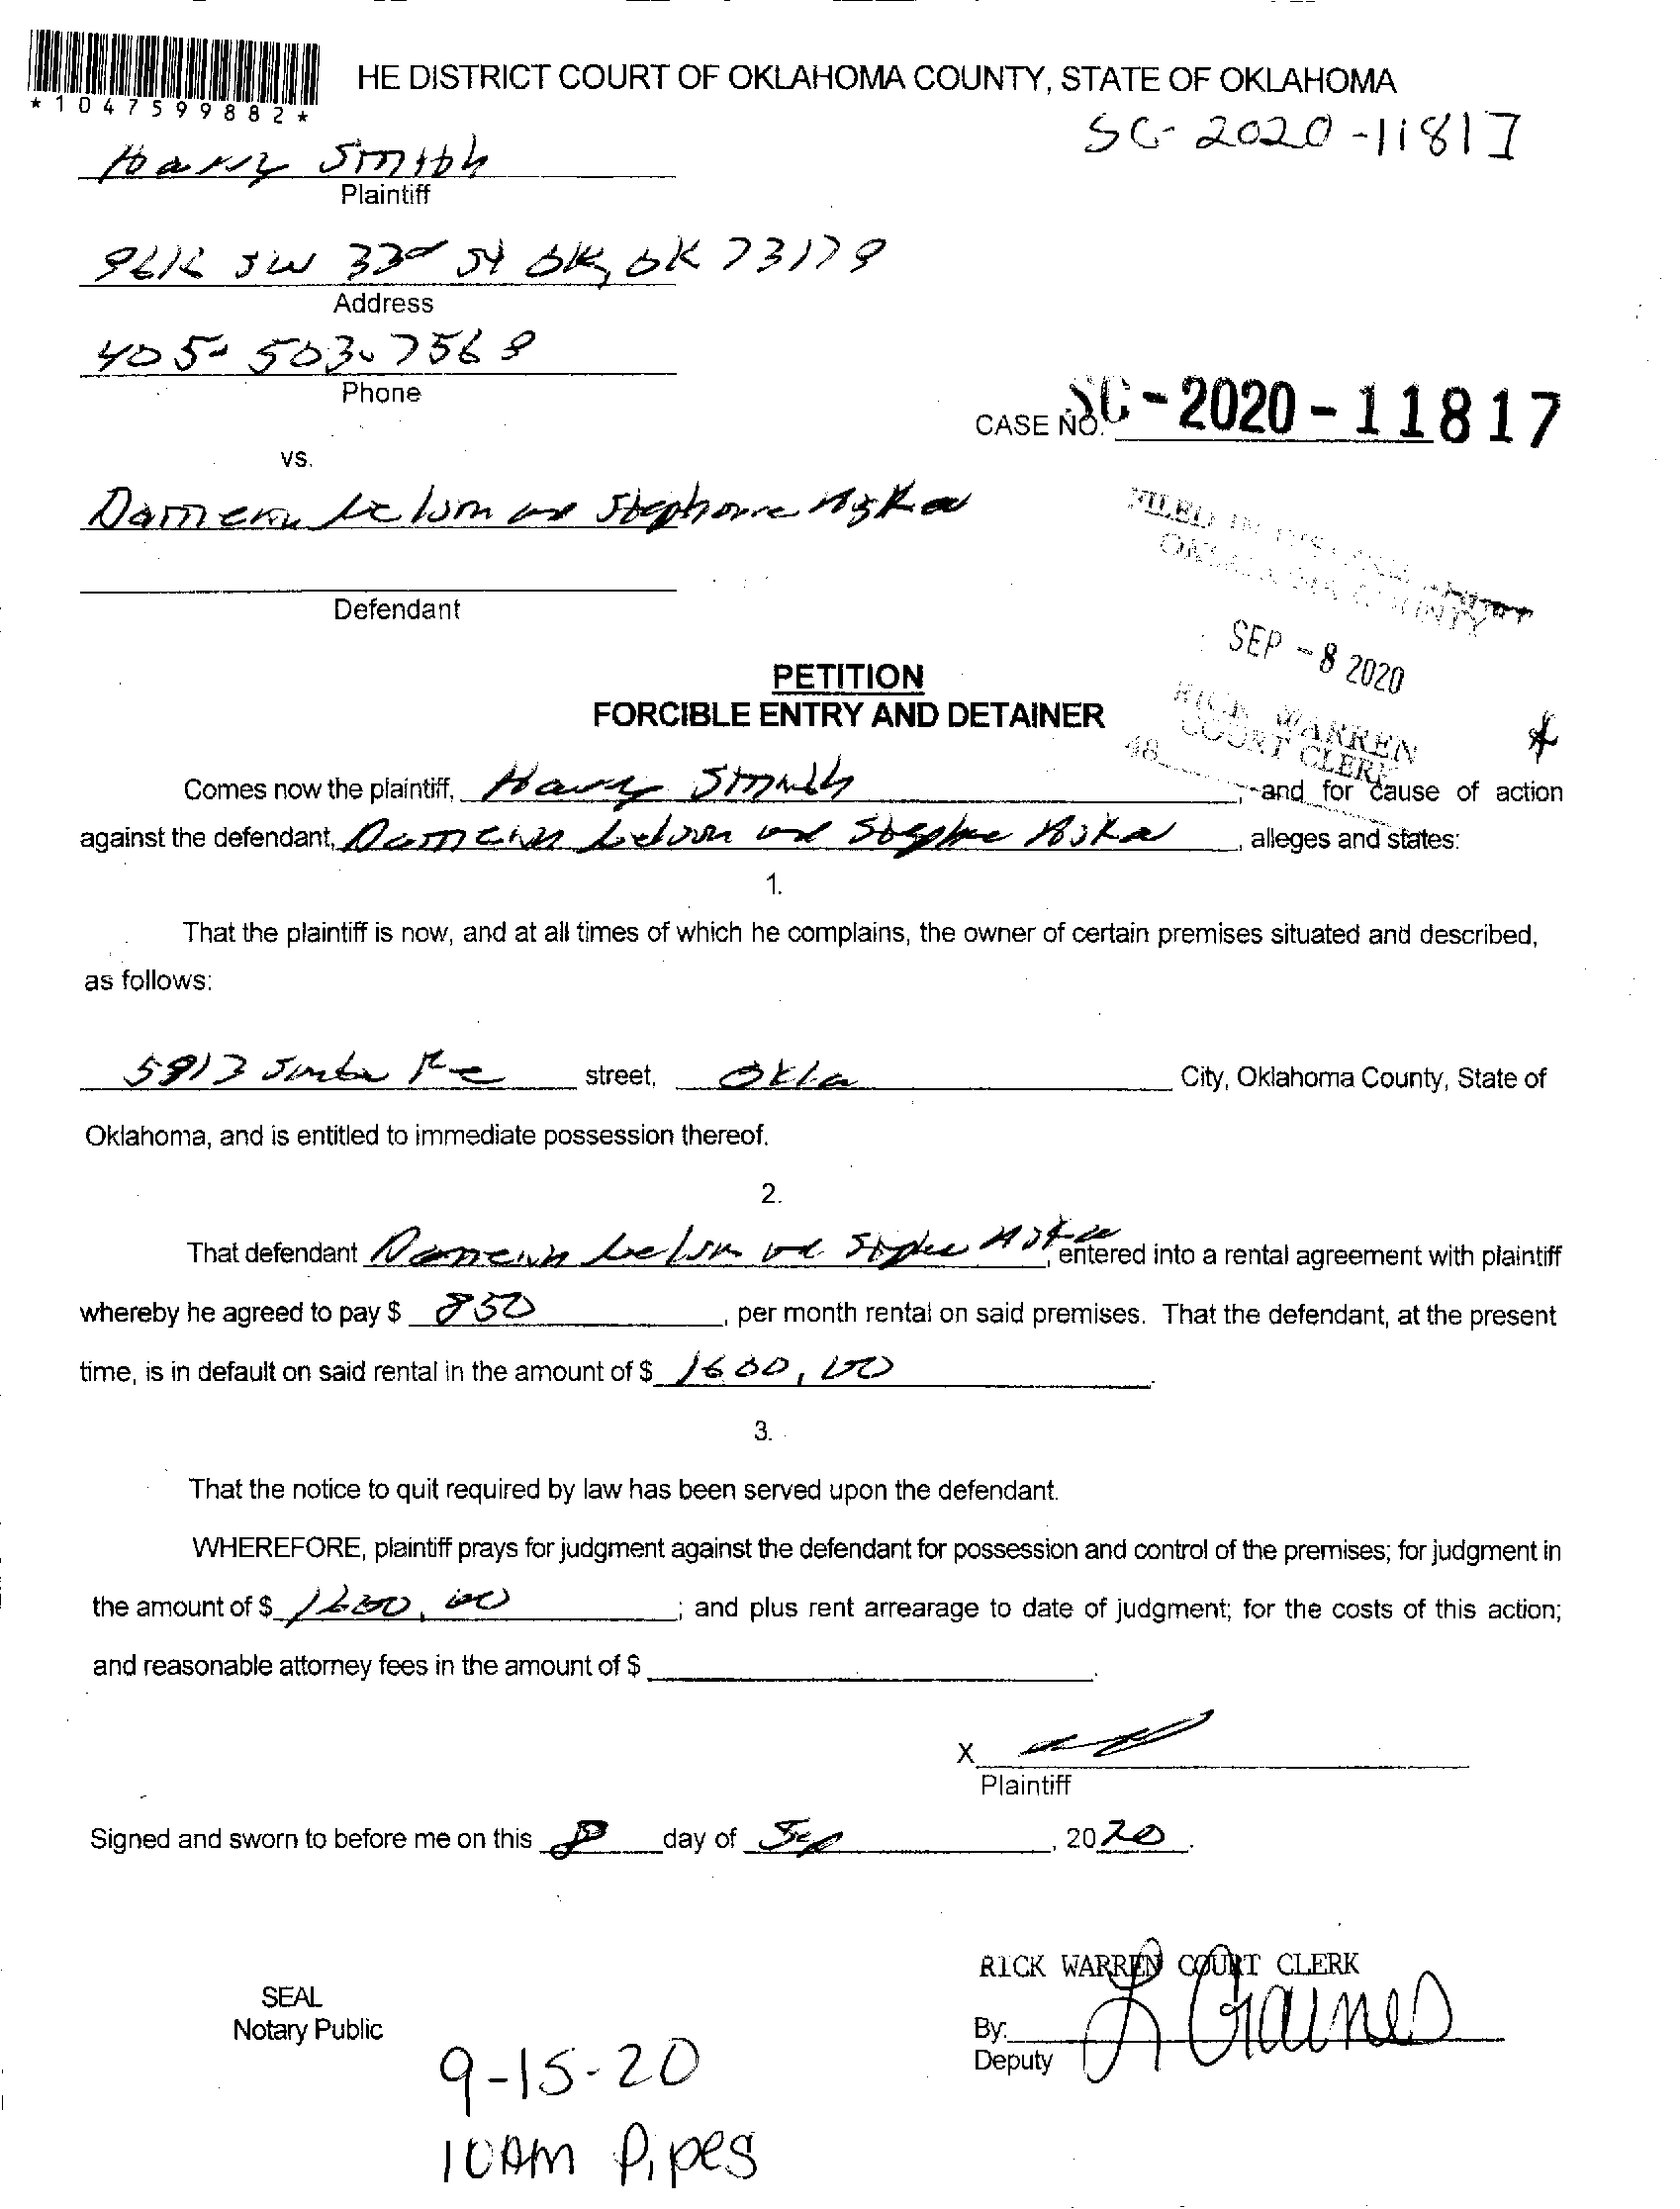 HE DISTRICT COURT OF OKLAHOMA COUNTY, STATE OF OKLAHOMA
*1047599882*
SC-2020-11817
Harry Smith
Plaintiff
SW St OK, OK 73179
Address
405-503-7568
Phone
CASE NO. SC-2020-11817
vs.
and
Defendant
FILED IN DISTRICT COURT
OKLAHOMA COUNTY
SEP -8 2020
RICK WARREN
COURT CLERK
48
PETITION
FORCIBLE ENTRY AND DETAINER
Comes now the plaintiff, Harry Smith, and for cause of action
against the defendant, and, alleges and states:
1.
That the plaintiff is now, and at all times of which he complains, the owner of certain premises situated and described,
as follows:
5913 street, Okla City, Oklahoma County, State of
Oklahoma, and is entitled to immediate possession thereof.
2.
That defendant and, entered into a rental agreement with plaintiff
whereby he agreed to pay $ 850, per month rental on said premises. That the defendant, at the present
time, is in default on said rental in the amount of $ 1600,00.
3.
That the notice to quit required by law has been served upon the defendant.
WHEREFORE, plaintiff prays for judgment against the defendant for possession and control of the premises; for judgment in
the amount of $; and plus rent arrearage to date of judgment; for the costs of this action;
and reasonable attorney fees in the amount of $.
X
Plaintiff
Signed and sworn to before me on this 8 day of Sep, 2020.
RICK WARREN COURT CLERK
SEAL
Notary Public
By: L Graines
Deputy
9-15-20
10AM Pipes